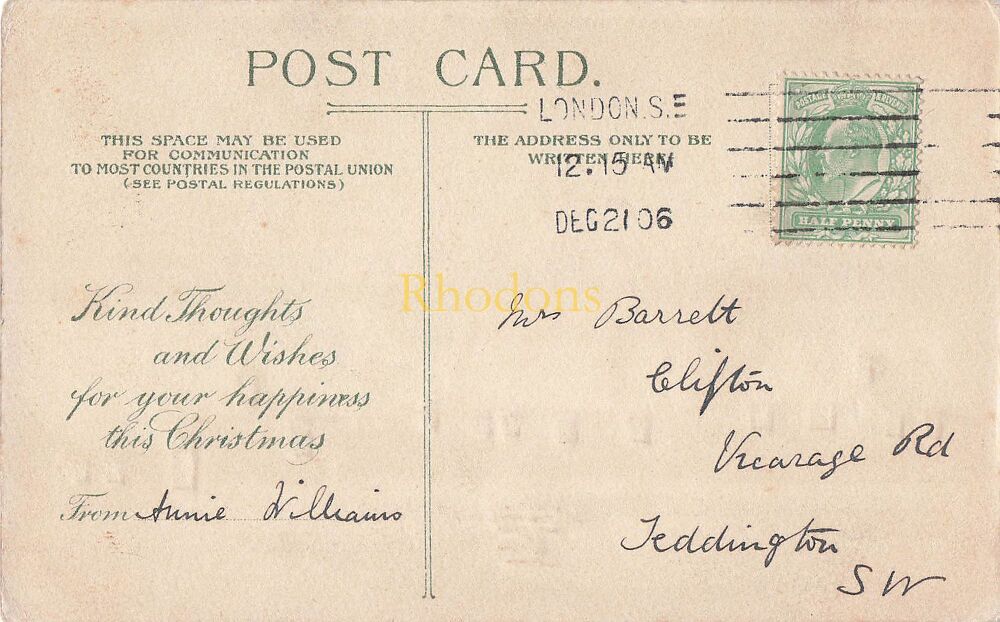 POST CARD.
THIS SPACE MAY BE USED
FOR COMMUNICATION
TO MOST COUNTRIES IN THE POSTAL UNION
(SEE POSTAL REGULATIONS)
THE ADDRESS ONLY TO BE
WRITTEN HERE
LONDON.S.E
12.15 AM
DEC 21 06
POSTAGE & REVENUE
HALF PENNY
Kind Thoughts
and Wishes
for your happiness
this Christmas
From Annie Williams
Rhodons
Mrs Barrett
Clifton
Vicarage Rd
Teddington
SW